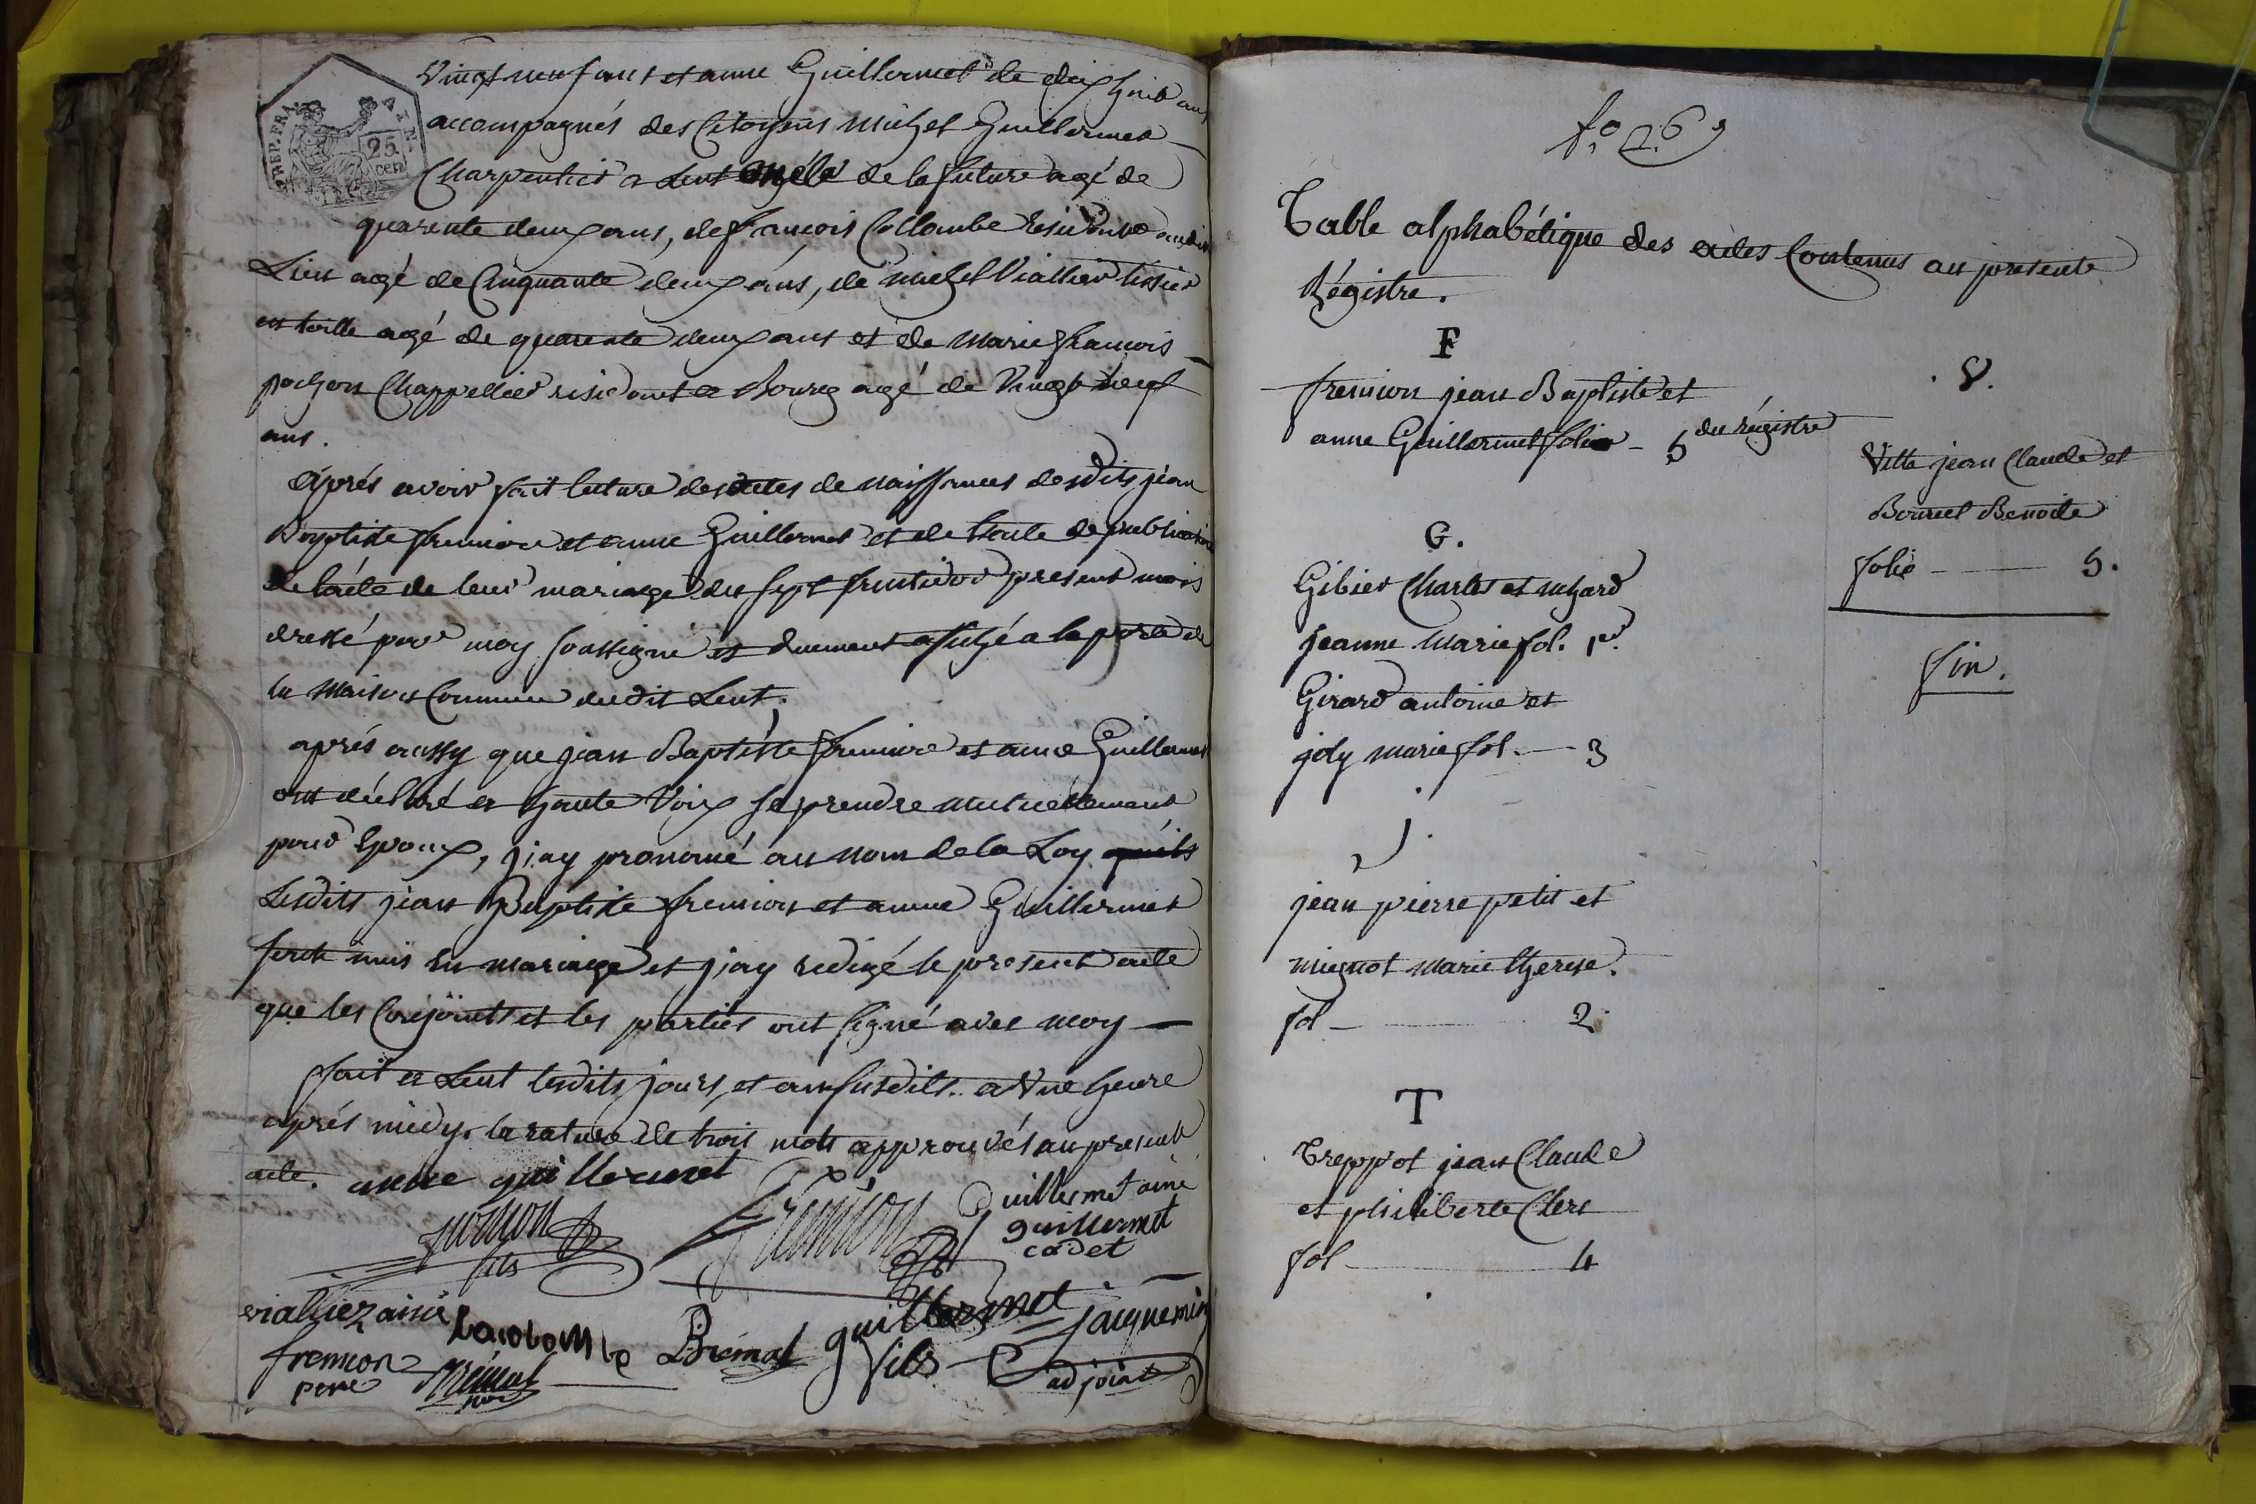 REP. FRA. AIN.
25 cen
Vingt neuf ans et anne Guillermet de dix huit ans
accompagnés des Citoyens michel Guillermet
Charpentier a Lent oncle de la future agé de
quarente deux ans, de françois Collombe residant audit
Lieu agé de Cinquante deux ans, de michel Viallier tissier
en toille agé de quarente deux ans et de marie françois
pochon Chappellier residant a Bourg agé de Vingt neuf
ans.
aprés avoir fait lecture des actes de naissances desdits jean
Baptiste fremion et anne Guillermet et de l'acte de publication
de l'acte de leur mariage du sept fructidor present mois
dressé par moy soussigné et duement affiché a la porte de
la Maison Commune dudit Lent.
aprés aussy que jean Baptiste fremion et anne Guillermet
ont déclaré a haute Voix se prendre mutuéllement
pour Epoux, j'ay prononcé au nom de la Loy qu'ils
Lesdits jean Baptiste fremion et anne Guillermet
sont unis en mariage et j'ay redigé le present acte
que les Conjoints et les parties ont signé avec moy
fait a Lent lesdits jours, et an susdits. a Une heure
aprés midy. la rature de trois mots approuvés au present
acte. anne guillermet
pochon fils
fremion
Guillermet ainé
guillermet cadet
viallier ainé
Lacolombe
Brémal
guillermet fils
jacquemin
adjoint
fremion pere
Brémal
fo. 26
Table alphabétique des actes Contenus au presente
Régistre.
F
fremion jean Baptiste et
anne Guillermet folio - 5 du régistre
G.
Gibier Charles et
jeanne marie fol. 1er
Girard antoine et
joly marie fol. - 3
J.
jean pierre petit et
mignot marie therese.
fol - 2
T
Treppot jean Claude
et philiberte Clerc
fol - 4
V.
Vitte jean Claude et
Bourcet Benoite
folio - 5.
fin.